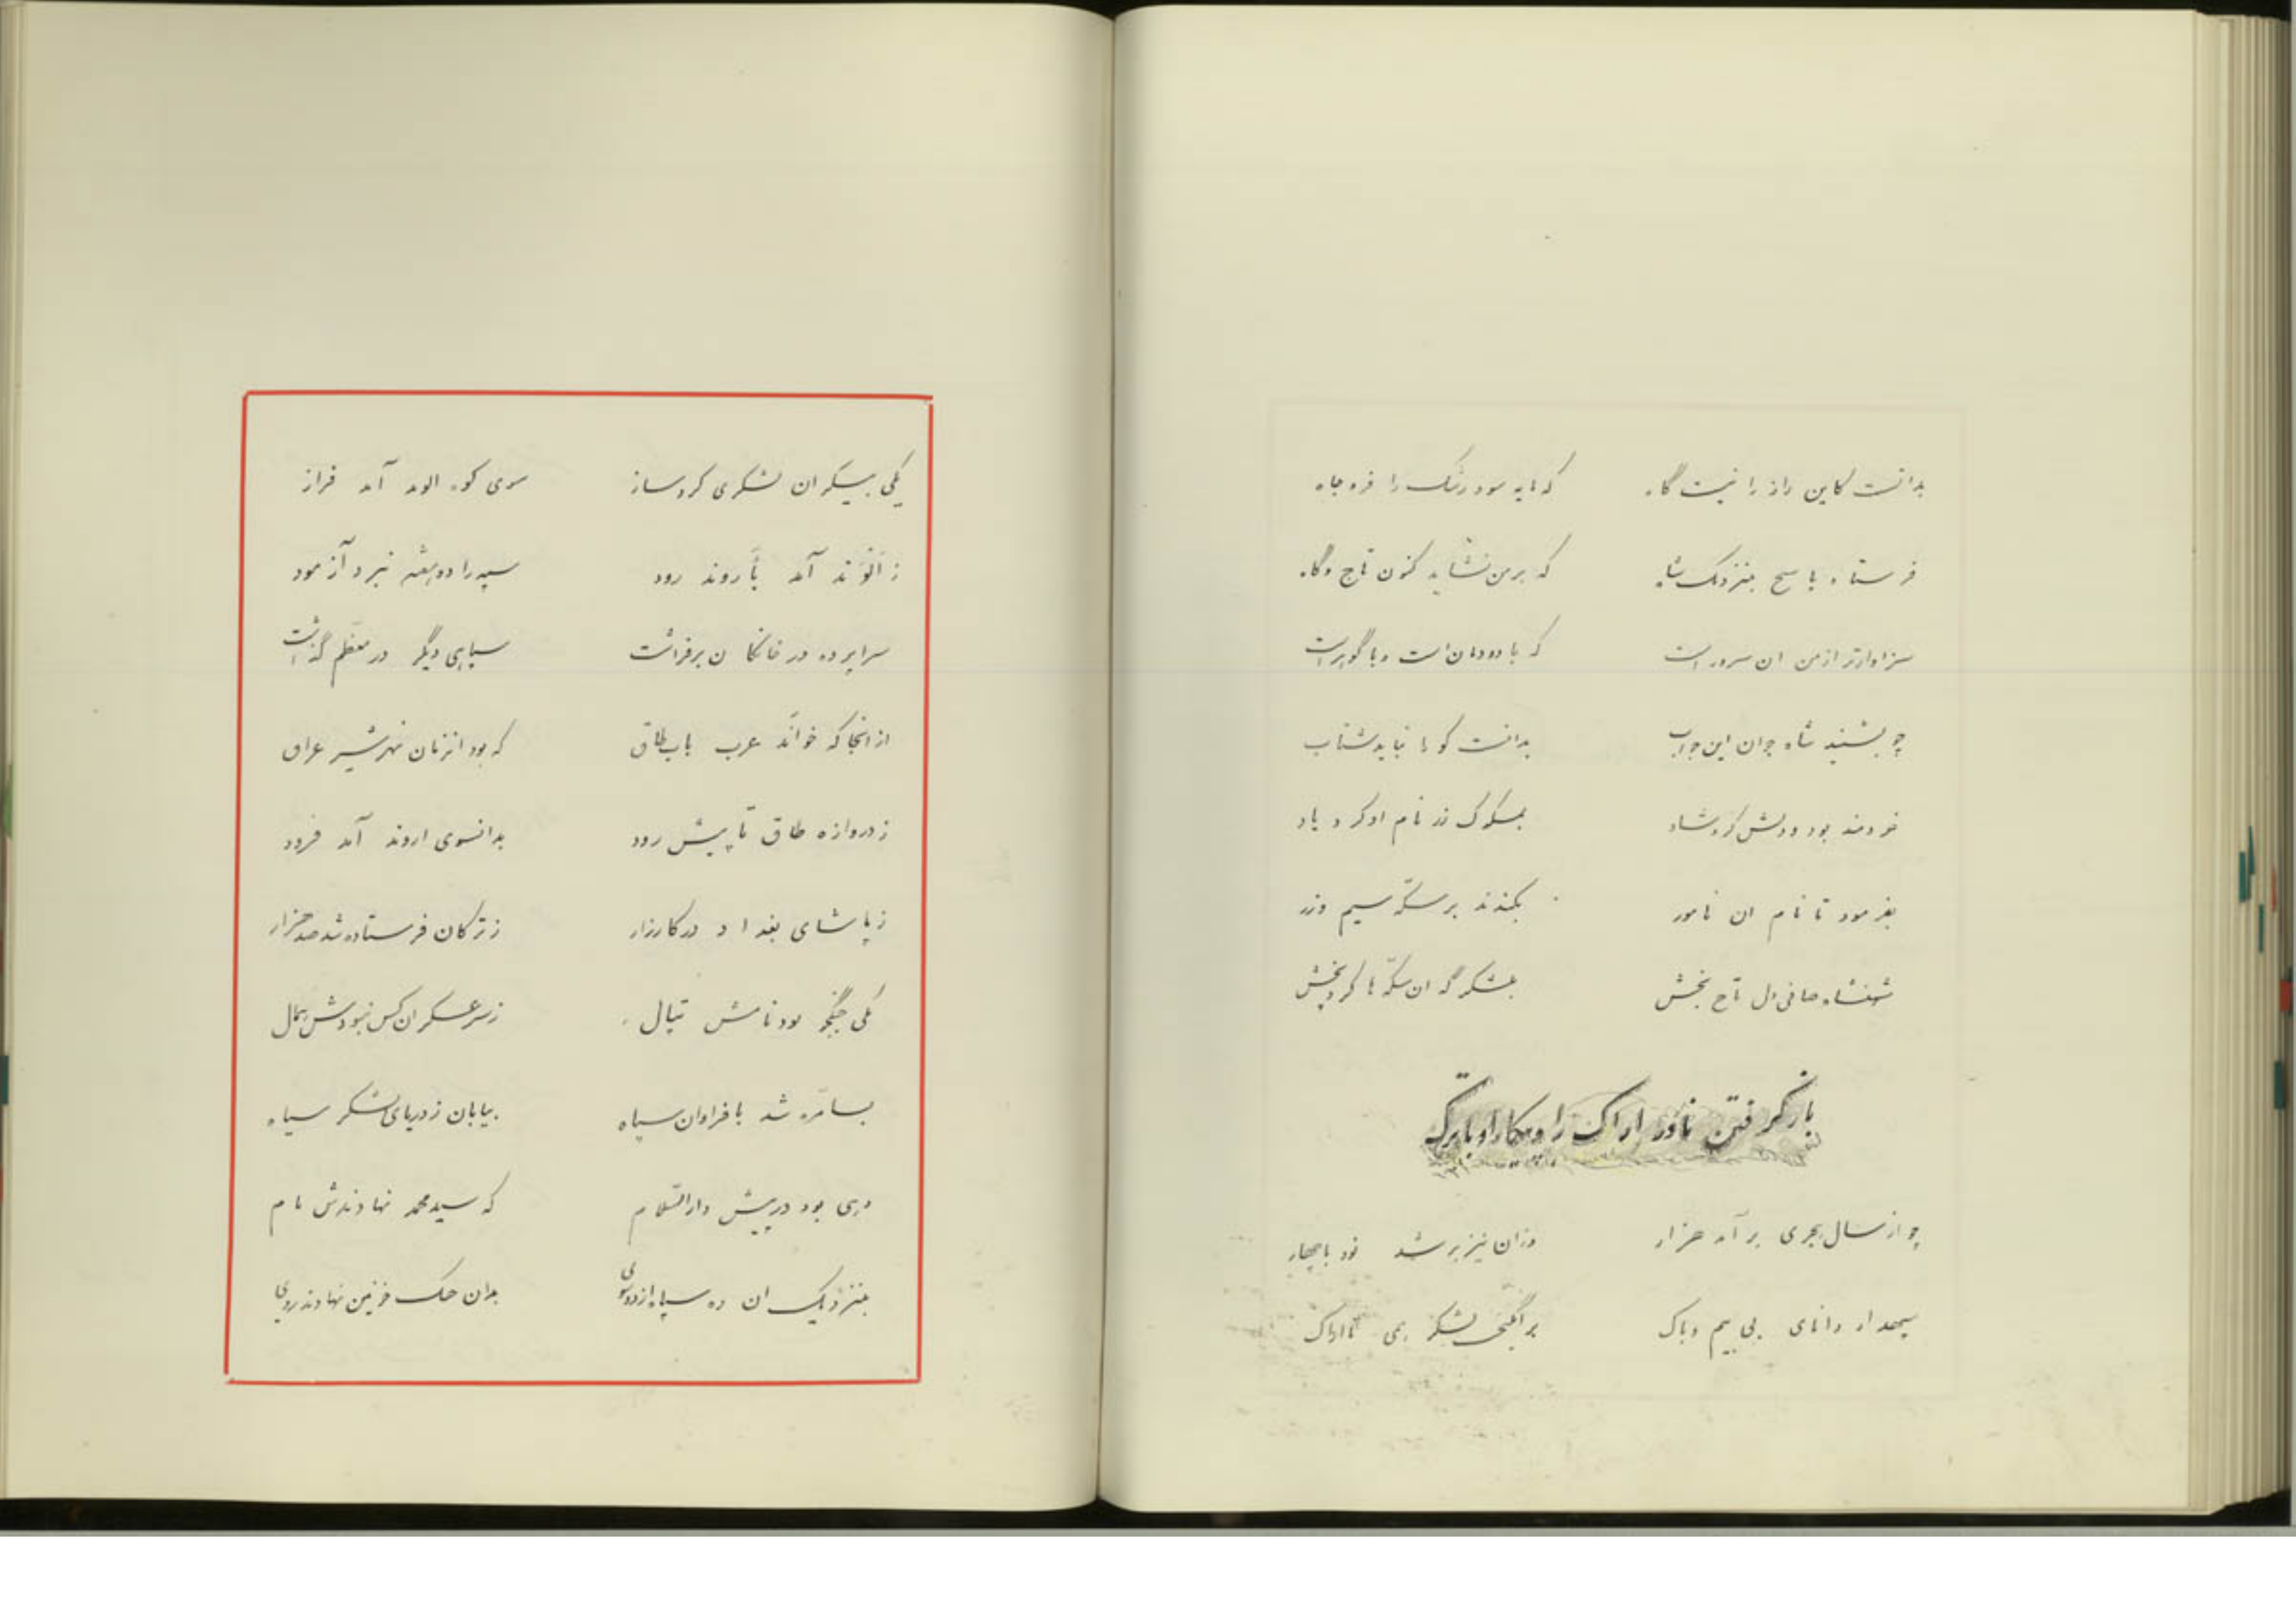 بدانست کاین راز را نیست گاه که مایه سود رنگ را فره جاه
فرستاد پاسخ بنزدیک شاه که بر من نشاید کنون تاج و گاه
سزاوارتر از من ان سرور است که با دودمان است و با گوهر است
چو بشنید شاه جوان این جواب بدانست کو را نباید شتاب
خردمند بود و دلش کرد شاد بمسکوک زر نام او کرد یاد
بفرمود تا نام ان نامور بکندند بر سکّه سیم و زر
شهنشاه صافی دل تاج بخش بلشکر که ان سکّه ها کرد پخش
بازگرفتن نادر اراک را و پیکار او با ترک
چو از سال هجری برآمد هزار وزان نیز بر شد نود با چهار
سپهدار دانای بی بیم و باک برانگیخت لشکر همی تا اراک
یکی بیکران لشکری کرد ساز سوی کوه الوند آمد فراز
ز الوَند آمد بأروند رود سپه را دو هفته نبرد آزمود
سراپرده در خانکان برفراشت سپاهی دیگر در معظّم گذاشت
از انجا که خوانَد عرب باب طاق که بود انزمان شهر شیر عراق
ز دروازه طاق تا پیش رود بدانسوی اروند آمد فرود
ز پاشای بغداد در کارزار ز ترکان فرستاده شد صد هزار
یکی جنگجو بود نامش تپال ز سرعسکران کس نبودش همال
بسامّره شد با فراوان سپاه بیابان ز دریای لشکر سیاه
دهی بود در پیش دارالسّلام که سید محمد نهادندش نام
بنزدیک ان ده سپاه از دو سوی بدان جنگ خونین نهادند روی